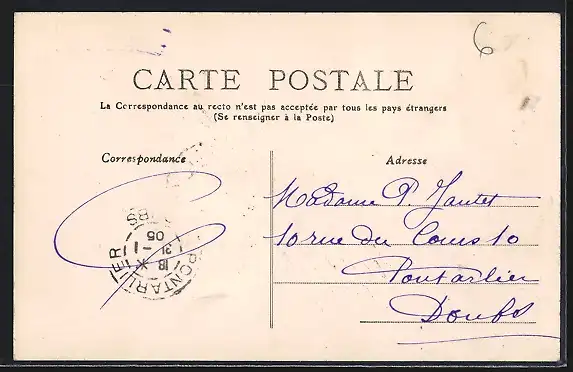 6
CARTE POSTALE
La Correspondance au recto n'est pas acceptée par tous les pays étrangers
(Se renseigner à la Poste)
Correspondance
Adresse
Madame P. Jantet
10 rue du Cours 10
Pontarlier
Doubs
PONTARLIER
18
31 -1
05
DOUBS